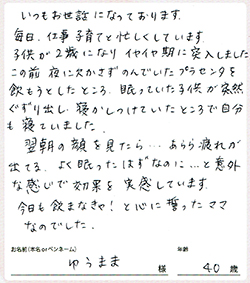 いつもお世話になっております。
毎日、仕事子育てと忙しくしています。
子供が2歳になりイヤイヤ期に突入しました
この前 夜に欠かさずのんでいたプラセンタを
飲もうとしたところ、眠っていた子供が突然
ぐずり出し、寝かしつけていたところで自分
も寝ていました。
翌朝の顔を見たら…あらら疲れが
出てる。よく眠ったはずなのに…と意外
な感じで効果を実感しています。
今日も飲まなきゃ!と心に誓ったママ
なのでした。
お名前(本名orペンネーム) 年齢
ゆうまま 様 40 歳